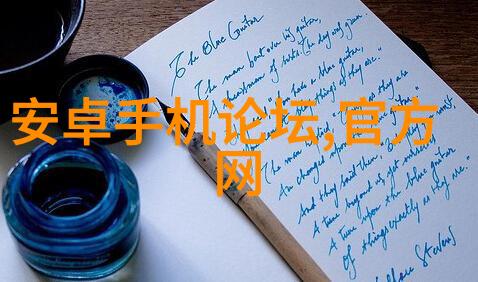 The Blue Guitar
The man bent over his guitar,
A shearsman of sorts. The day was green.
have a blue guitar,
things as they are."
安卓手机论坛,官方
网
The man as they are
changed upon the blue guitar."
And they said then, "But play, you must,
A tune beyond us, yet ourselves,
A tune upon the blue guitar
Of things exactly as they are."
Stevens